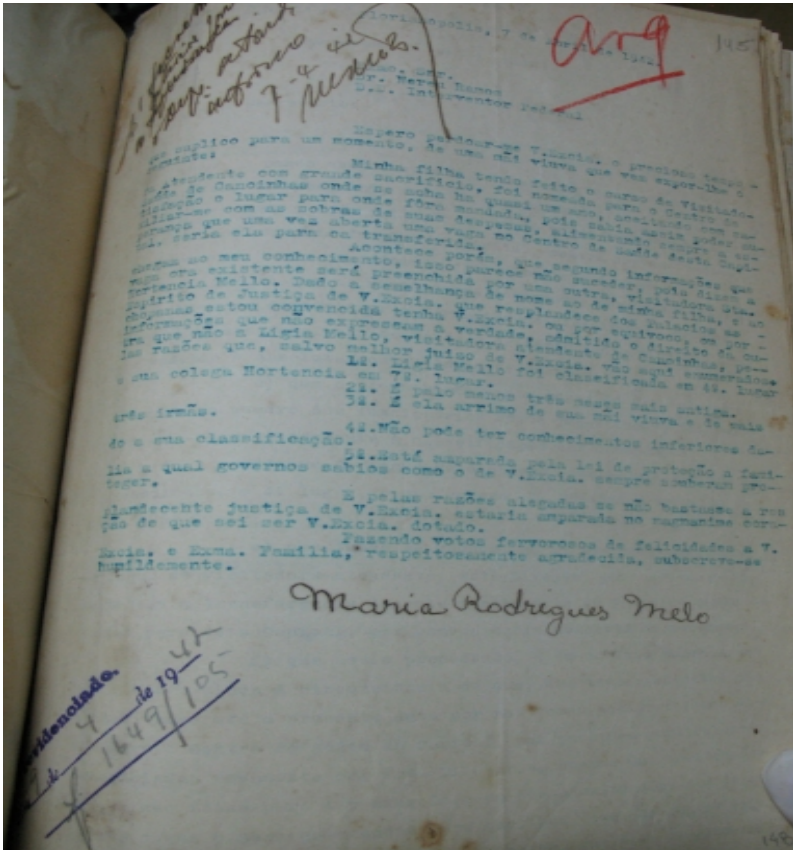 arq
145
Florianopolis, 7 de abril de 1942.
Exmo. Snr.
Dr. Nereu Ramos
D.D. Interventor Federal
Espero perdoar-me V.Excia. o precioso tempo
que suplico para um momento, de uma mãi viuva que vem expor-lhe o
seguinte:
Minha filha tendo feito o curso de Visitado-
ra atendente com grande sacrificio, foi nomeada para o Centro de
Saude de Canoinhas onde se acha ha quasi um ano, aceitando com sa-
tisfação o lugar para onde fôra mandada, pois sabia assim poder au-
xiliar-me com as sobras de suas despezas, alimentando sempre a es-
perança que uma vez aberta uma vaga no Centro de Saude desta Capi-
tal, seria ela para ca transferida.
Acontece porém, que segundo informações que
chegam ao meu conhecimento, isso parece não suceder, pois dizem a
vaga ora existente será preenchida por uma outra, visitadora Sta.
Hortencia Mello. Dado a semelhança de nome ao de minha filha, e ao
Espirito de Justiça de V.Excia. que resplandece dos Palacios as
choupanas estou convencida tenha V.Excia. ou por equivoco, ou por
informações que não expressam a verdade, admitido o direito da ou-
tra que não a Ligia Mello, visitadora atendente de Canoinhas, pe-
las razões que, salvo melhor juiso de V.Excia. vão aqui enumeradas.
1ª. Ligia Mello foi classificada em 4º. lugar
e sua colega Hortencia em lugar.
2ª. É pelo menos três meses mais antiga.
3ª. É ela arrimo de sua mãi viuva e de mais
três irmãs.
4ª.Não pode ter conhecimentos inferiores da-
do a sua classificação.
5ª.Está amparada pela lei de proteção a fami-
lia a qual governos sabios como o de V.Excia. sempre souberam pro-
teger.
E pelas razões alegadas se não bastasse a res
plandecente justiça de V.Excia. estaria amparada no magnanimo cora-
ção de que sei ser V.Excia. dotado.
Fazendo votos fervorosos de felicidades a V.
Excia. e Exma. Familia, respeitosamente agradecida, subscrevo-se
humildemente.
Maria Rodrigues Melo
Providenciado.
de 4 de 1942
1649/105